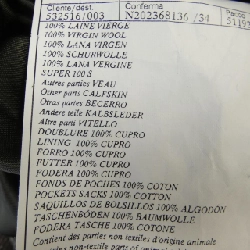 Cliente/dest. Conferma Pacco
532516/003 N202368136 /34 5119
100% LAINE VIERGE
100% VIRGIN WOOL
100% LANA VIRGEN
100% SCHURWOLLE
100% LANA VERGINE
SUPER 100S
Autres parties VEAU
Other parts CALFSKIN
Otras partes BECERRO
Andere teile KALBSLEDER
Altre parti VITELLO
DOUBLURE 100% CUPRO
LINING 100% CUPRO
FORRO 100% CUPRO
FUTTER 100% CUPRO
FODERA 100% CUPRO
FONDS DE POCHES 100% COTON
POCKETS SACKS 100% COTTON
SAQUILLOS DE BOLSILLOS 100% ALGODON
TASCHENBÖDEN 100% BAUMWOLLE
FODERA TASCHE 100% COTONE
Contient des parties non textiles d'origine animale
non-textile parts of